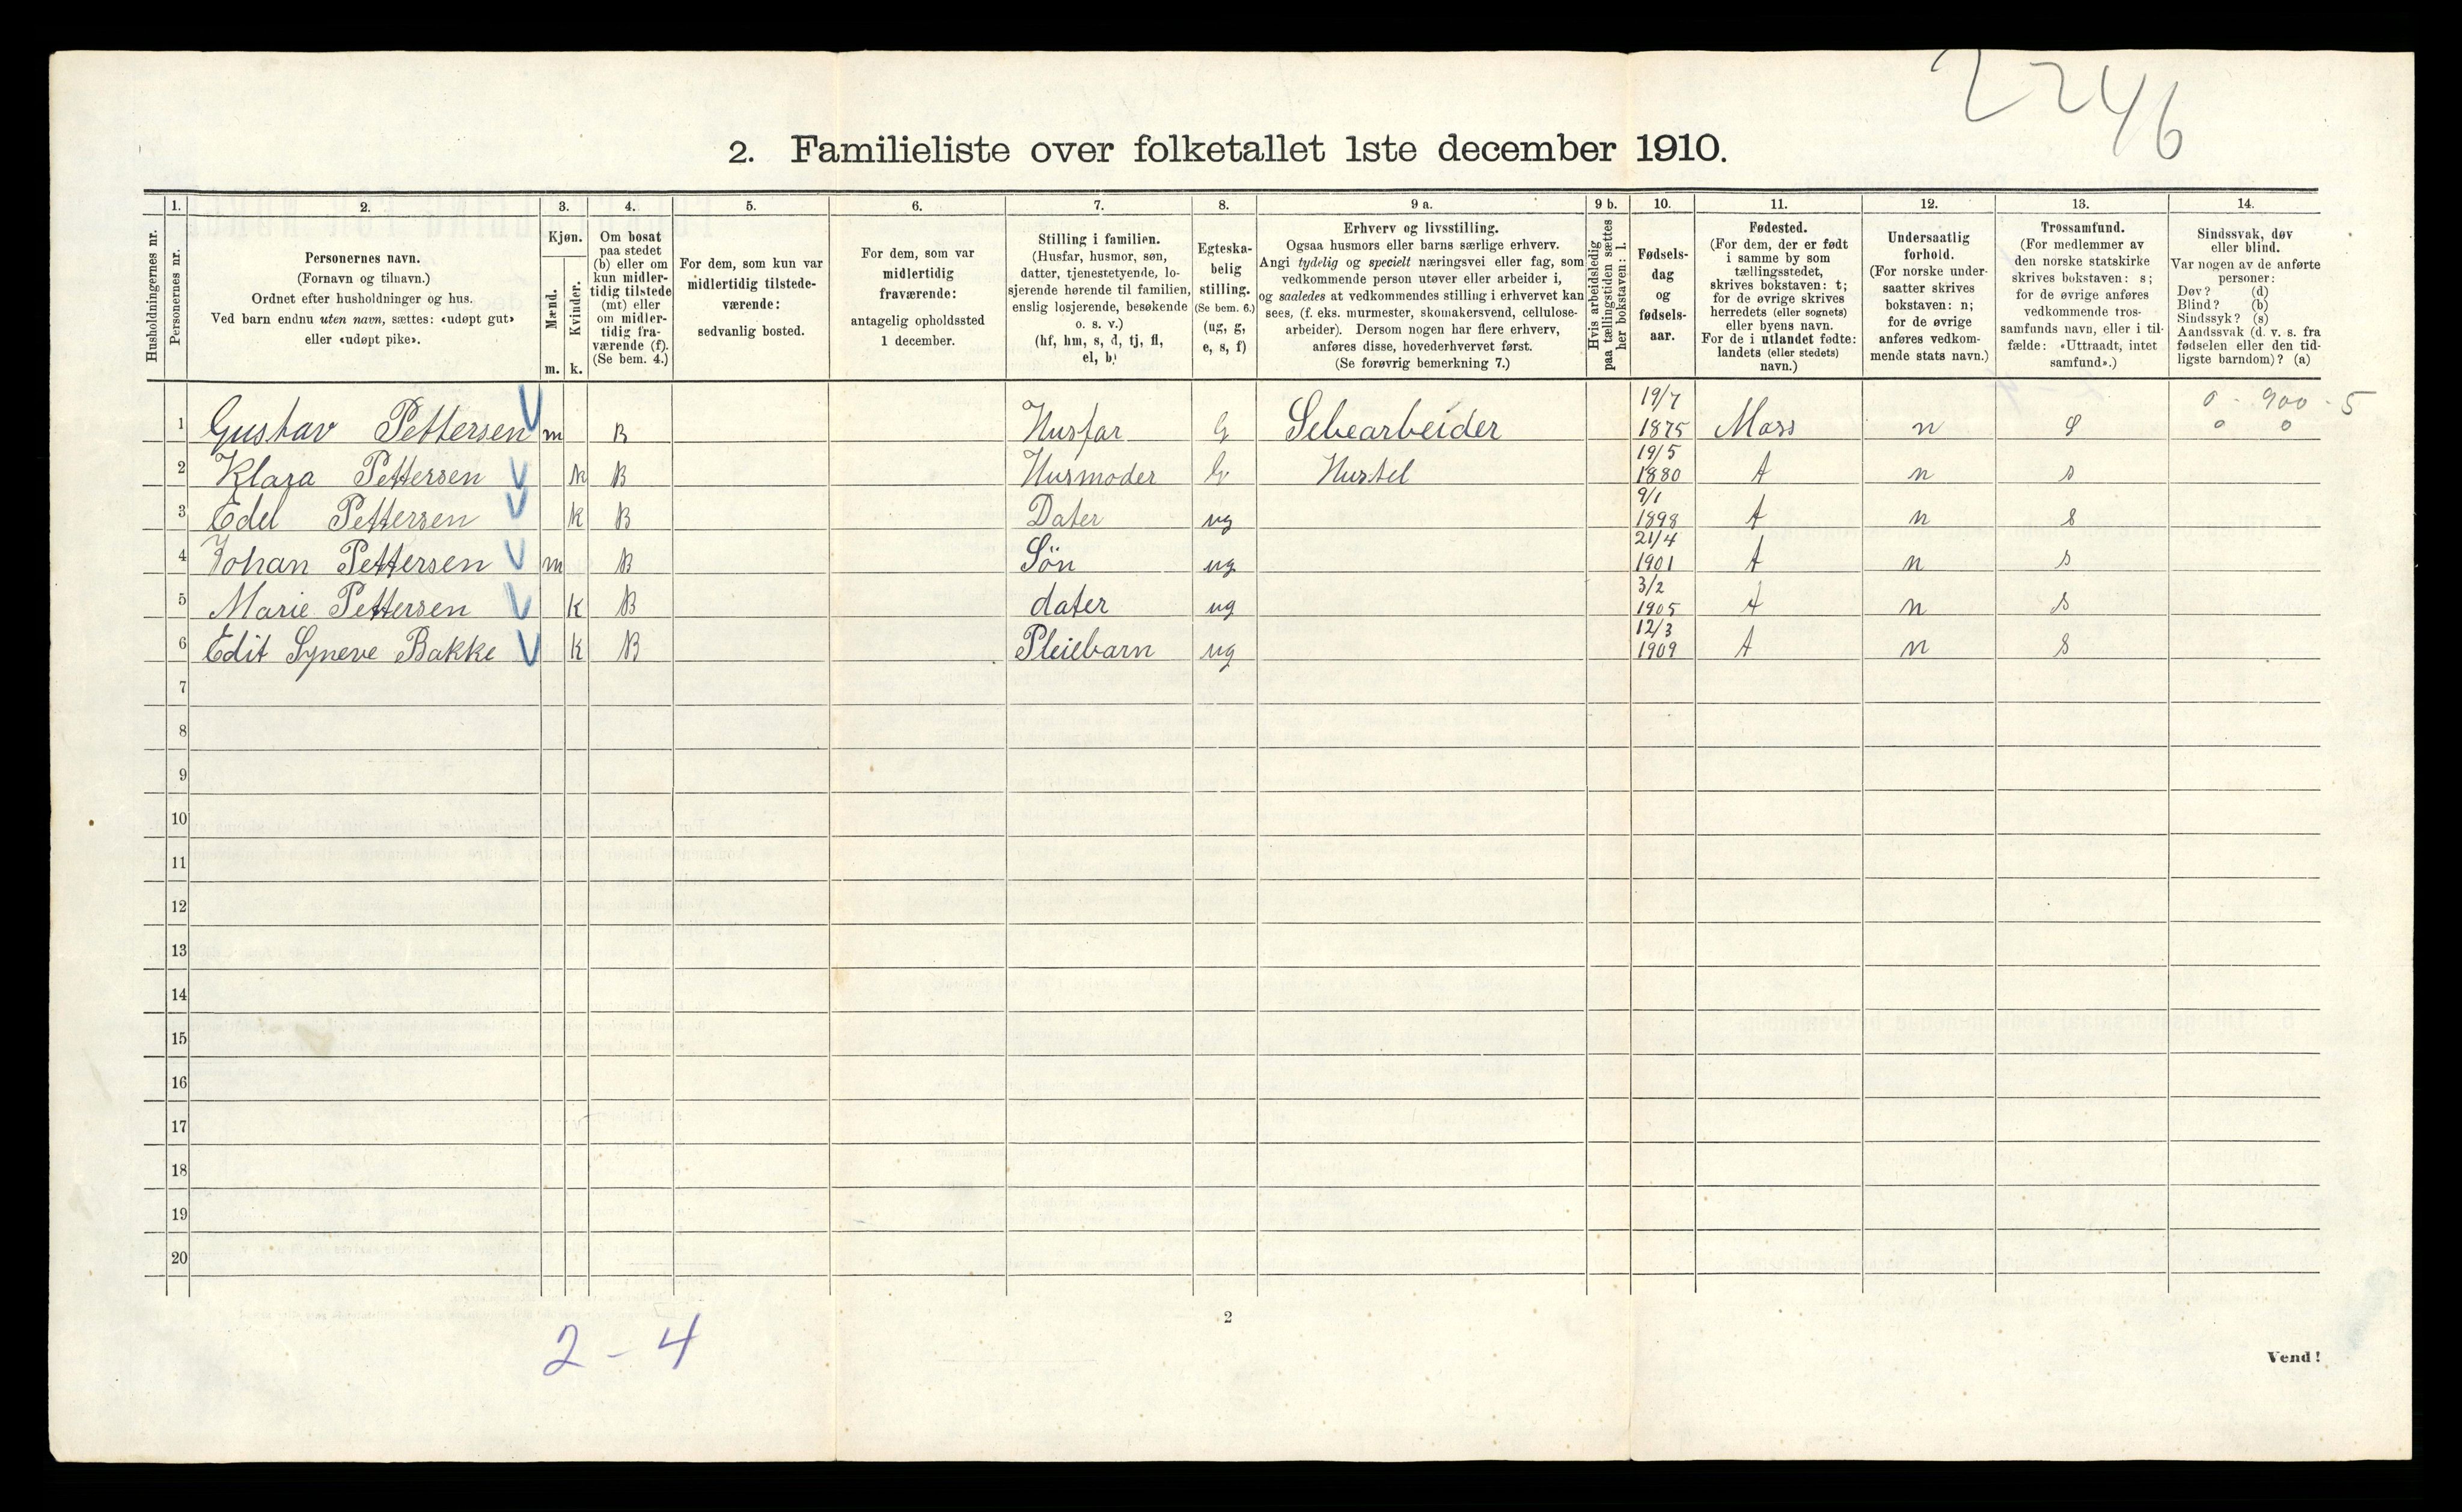 2246
2. Familieliste over folketallet 1ste december 1910.
1. 2. 3. 4. 5. 6. 7. 8. 9 a. 9 b. 10. 11. 12. 13. 14.
Husholdningernes nr.
Personernes nr.
Personernes navn.
(Fornavn og tilnavn.)
Ordnet efter husholdninger og hus.
Ved barn endnu uten navn, sættes: «udøpt gut»
eller «udøpt pike».
Kjøn.
Mænd.
Kvinder.
m. k.
Om bosat
paa stedet
(b) eller om
kun midler-
tidig tilstede
(mt) eller
om midler-
tidig fra-
værende (f).
(Se bem. 4.)
For dem, som kun var
midlertidig tilstede-
værende:
sedvanlig bosted.
For dem, som var
midlertidig
fraværende:
antagelig opholdssted
1 december.
Stilling i familien.
(Husfar, husmor, søn,
datter, tjenestetyende, lo-
sjerende hørende til familien,
enslig losjerende, besøkende
o. s. v.)
(hf, hm, s, d, tj, fl,
el, b)
Egteska-
belig
stilling.
(Se bem. 6.)
(ug, g,
e, s, f)
Erhverv og livsstilling.
Ogsaa husmors eller barns særlige erhverv.
Angi tydelig og specielt næringsvei eller fag, som
vedkommende person utøver eller arbeider i,
og saaledes at vedkommendes stilling i erhvervet kan
sees, (f. eks. murmester, skomakersvend, cellulose-
arbeider). Dersom nogen har flere erhverv,
anføres disse, hovederhvervet først.
(Se forøvrig bemerkning 7.)
Hvis arbeidsledig
paa tællingstiden sættes
her bokstaven: l.
Fødsels-
dag
og
fødsels-
aar.
Fødested.
(For dem, der er født
i samme by som
tællingsstedet,
skrives bokstaven: t;
for de øvrige skrives
herredets (eller sognets)
eller byens navn.
For de i utlandet fødte:
landets (eller stedets)
navn.)
Undersaatlig
forhold.
(For norske under-
saatter skrives
bokstaven: n;
for de øvrige
anføres vedkom-
mende stats navn.)
Trossamfund.
(For medlemmer av
den norske statskirke
skrives bokstaven: s;
for de øvrige anføres
vedkommende tros-
samfunds navn, eller i til-
fælde: «Uttraadt, intet
samfund».)
Sindssvak, døv
eller blind.
Var nogen av de anførte
personer:
Døv? (d)
Blind? (b)
Sindssyk? (s)
Aandssvak (d. v. s. fra
fødselen eller den tid-
ligste barndom)? (a)
19/7 0 - 900 - 5
1 Gustav Pettersen m B Husfar G Sebearbeider 1875 Mass n S 0 0
19/5
2 Klara Pettersen k B Husmoder G Hustel 1880 t n s
9/1
3 Edel Pettersen k B Dater ug 1898 t n s
21/4
4 Johan Pettersen m B Sön ug 1901 t n s
3/2
5 Marie Pettersen k B dater ug 1905 t n s
12/3
6 Edit Syneve Bakke k B Pleiebarn ug 1909 t n s
7
8
9
10
11
12
13
14
15
16
17
18
19
20
2
2 - 4
Vend!